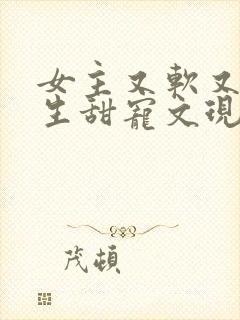 女主又軟又
生甜寵文現
茂頓